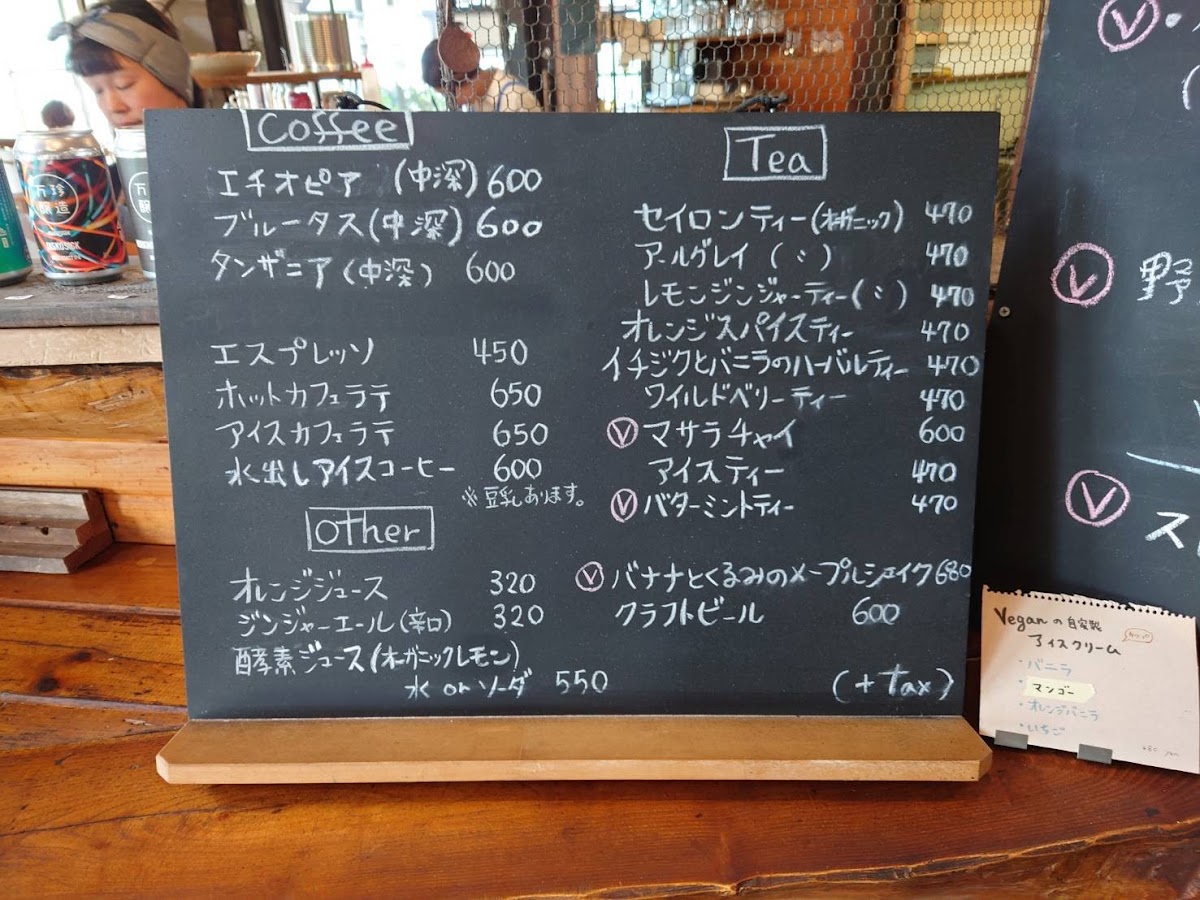 Coffee
エチオピア (中深) 600
ブルータス (中深) 600
タンザニア (中深) 600
エスプレッソ 450
ホットカフェラテ 650
アイスカフェラテ 650
水出しアイスコーヒー 600
※豆乳あります。
Other
オレンジジュース 320
ジンジャーエール(辛口) 320
酵素ジュース(オーガニックレモン)
水 or ソーダ 550
Tea
セイロンティー(オーガニック) 470
アールグレイ (〃) 470
レモンジンジャーティー(〃) 470
オレンジスパイスティー 470
イチジクとバニラのハーバルティー 470
ワイルドベリーティー 470
Ⓥ マサラチャイ 600
アイスティー 470
Ⓥ バターミントティー 470
Ⓥ バナナとくるみのメープルシェイク 680
クラフトビール 600
(+tax)
Ⓥ
Ⓥ 野
Ⓥ
ス
Veganの自家製
アイスクリーム
・バニラ
・マンゴー
・オレンジバニラ
・いちご
万珍醸造